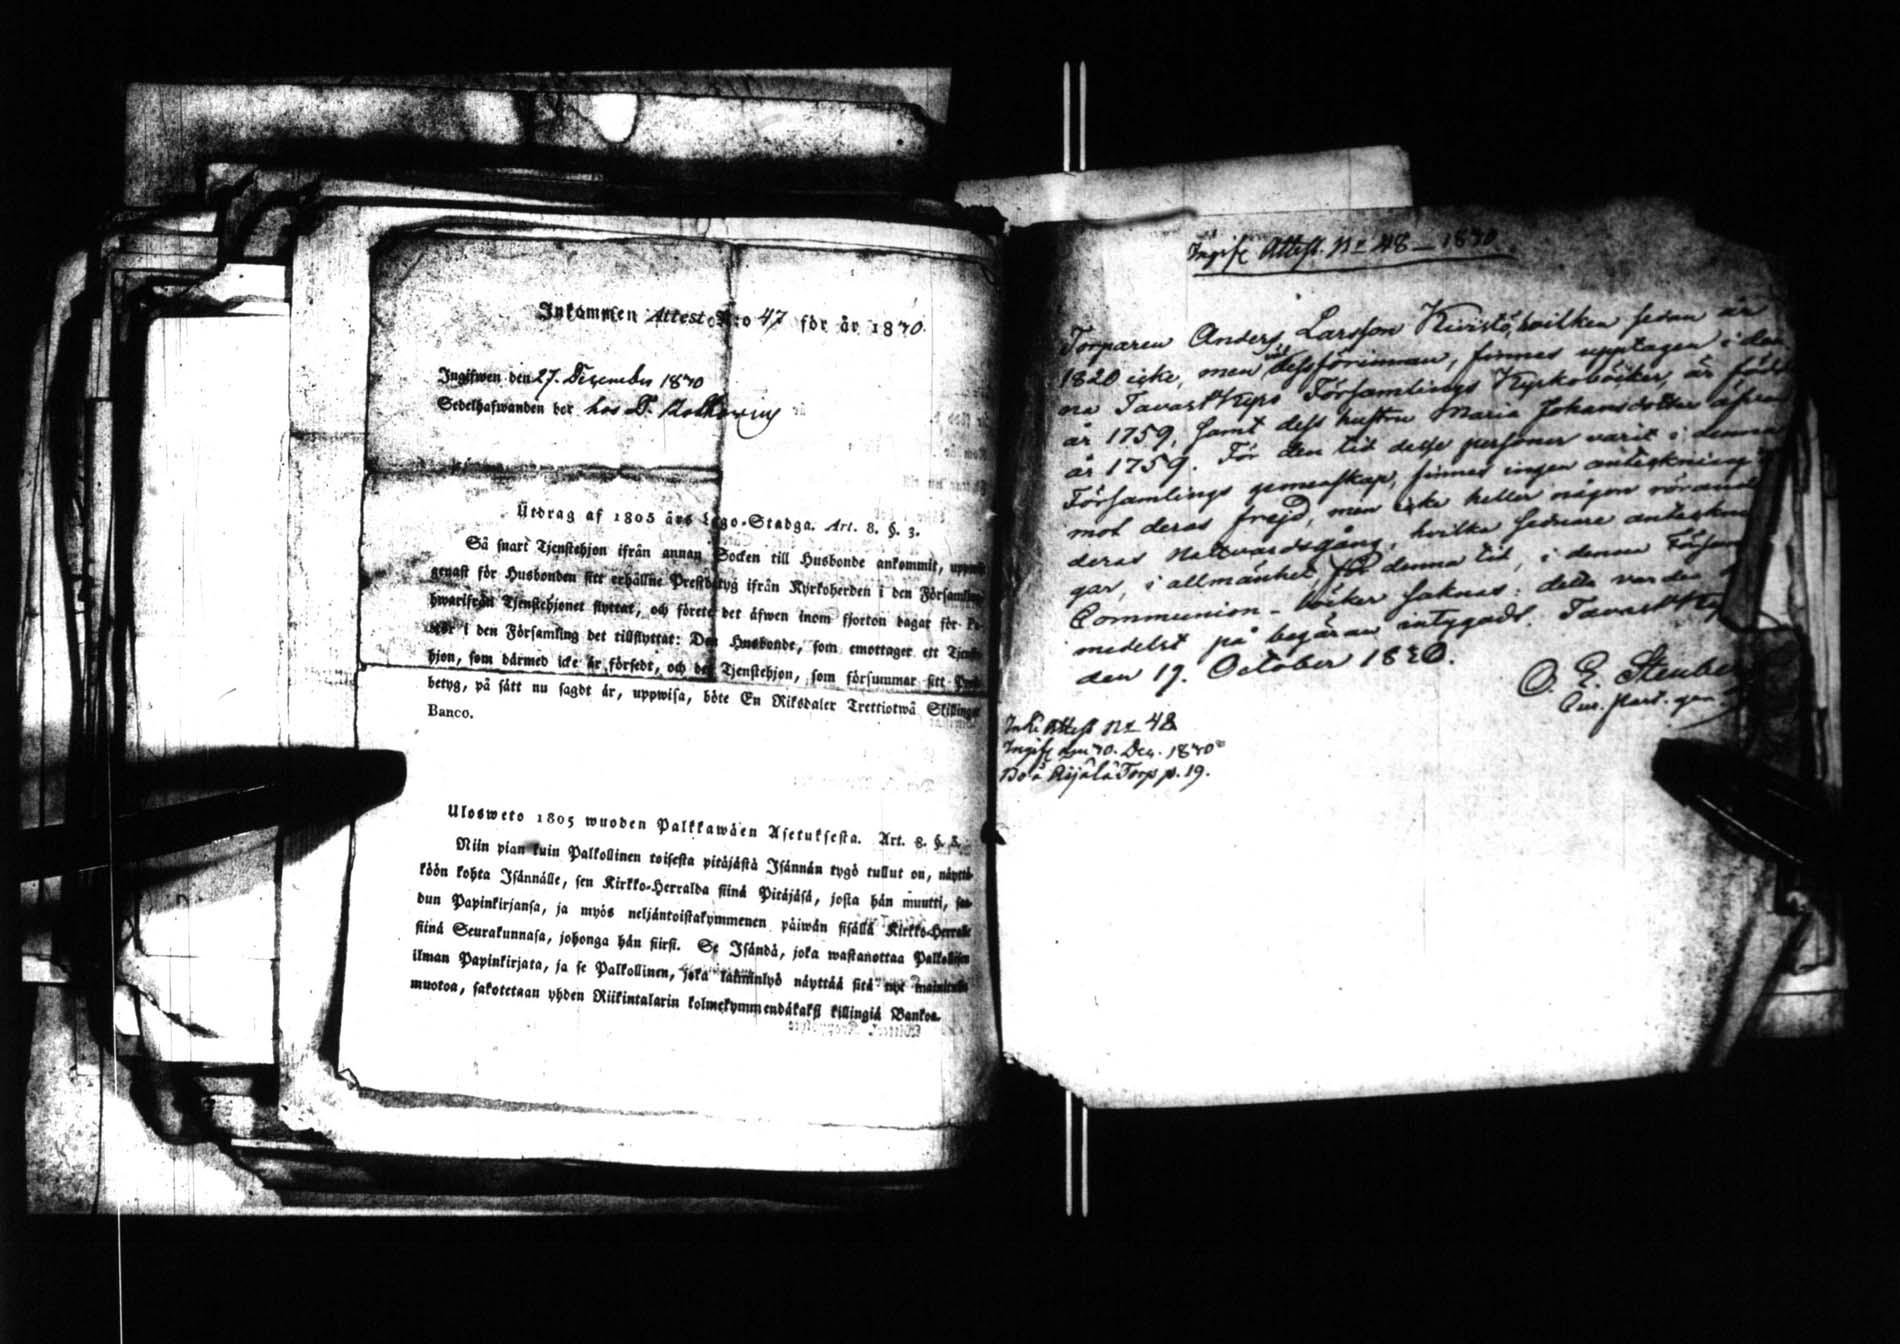 Inkommen Attest N:o 47 för år 1830.
Ingifwen den 27. December 1830
Sedelhafwanden bor hos D.
Utdrag af 1805 års Lego-Stadga. Art. 8. §. 3.
Så snart Tjenstehjon ifrån annan Socken till Husbonde ankommit, uppwise
genast för Husbonden sitt erhållne Prestbetyg ifrån Kyrkoherden i den Församling
hwarifrån Tjenstehjonet flyttat, och förete det äfwen inom fjorton dagar för
i den Församling det tillflyttat: Den Husbonde, som emottager ett Tjenste-
hjon, som därmed icke är försedt, och det Tjenstehjon, som försummar sitt Prest-
betyg, på sätt nu sagdt är, uppwisa, böte En Riksdaler Trettiotwå Skillingar
Banco.
Ulosweto 1805 wuoden Palkkawäen Asetuksesta. Art. 8. §. 3.
Niin pian kuin Palkollinen toisesta pitäjästä Isännän tygö tullut on, näyttä-
köön kohta Isännälle, sen Kirkko-Herralda siinä Pitäjäsä, josta hän muutti, saa-
dun Papinkirjansa, ja myös neljäntoistakymmenen päiwän sisällä Kirkko-Herralle
siinä Seurakunnasa, johonga hän siirsi. Se Isändä, joka wastanottaa Palkollisen
ilman Papinkirjata, ja se Palkollinen, joka laiminlyö näyttää sitä nyt mainitulla
muotoa, sakotetaan yhden Riikintalarin kolmekymmendäkaksi killingiä Bankoa.
Ingifv. Attest. N:o 48 – 1830
Torparen Anders Larsson Kivistö, hvilken sedan år
1820 icke, men väl dessförinnan, finnes upptagen i den
na Tavastkyro Församlings Kyrkoböcker, är född
år 1759, samt dess hustru Maria Johansdotter äfven
år 1759. För den tid desse personer varit i denna
Församlings gemenskap, finnes ingen anteckning
mot deras frejd, men icke heller någon rörande
deras Nattvardsgång, hvilka sednare antecknin
gar, i allmänhet för denna tid, i denna Försam
Communion-böcker saknas: detta varder
medelst på begäran intygadt. Tavastky
den 19. October 1830.
O. E. Steuber
Ink. Attest N:o 48
Ingifv. den 30. Dec. 1830
Bo å Torp p. 19.